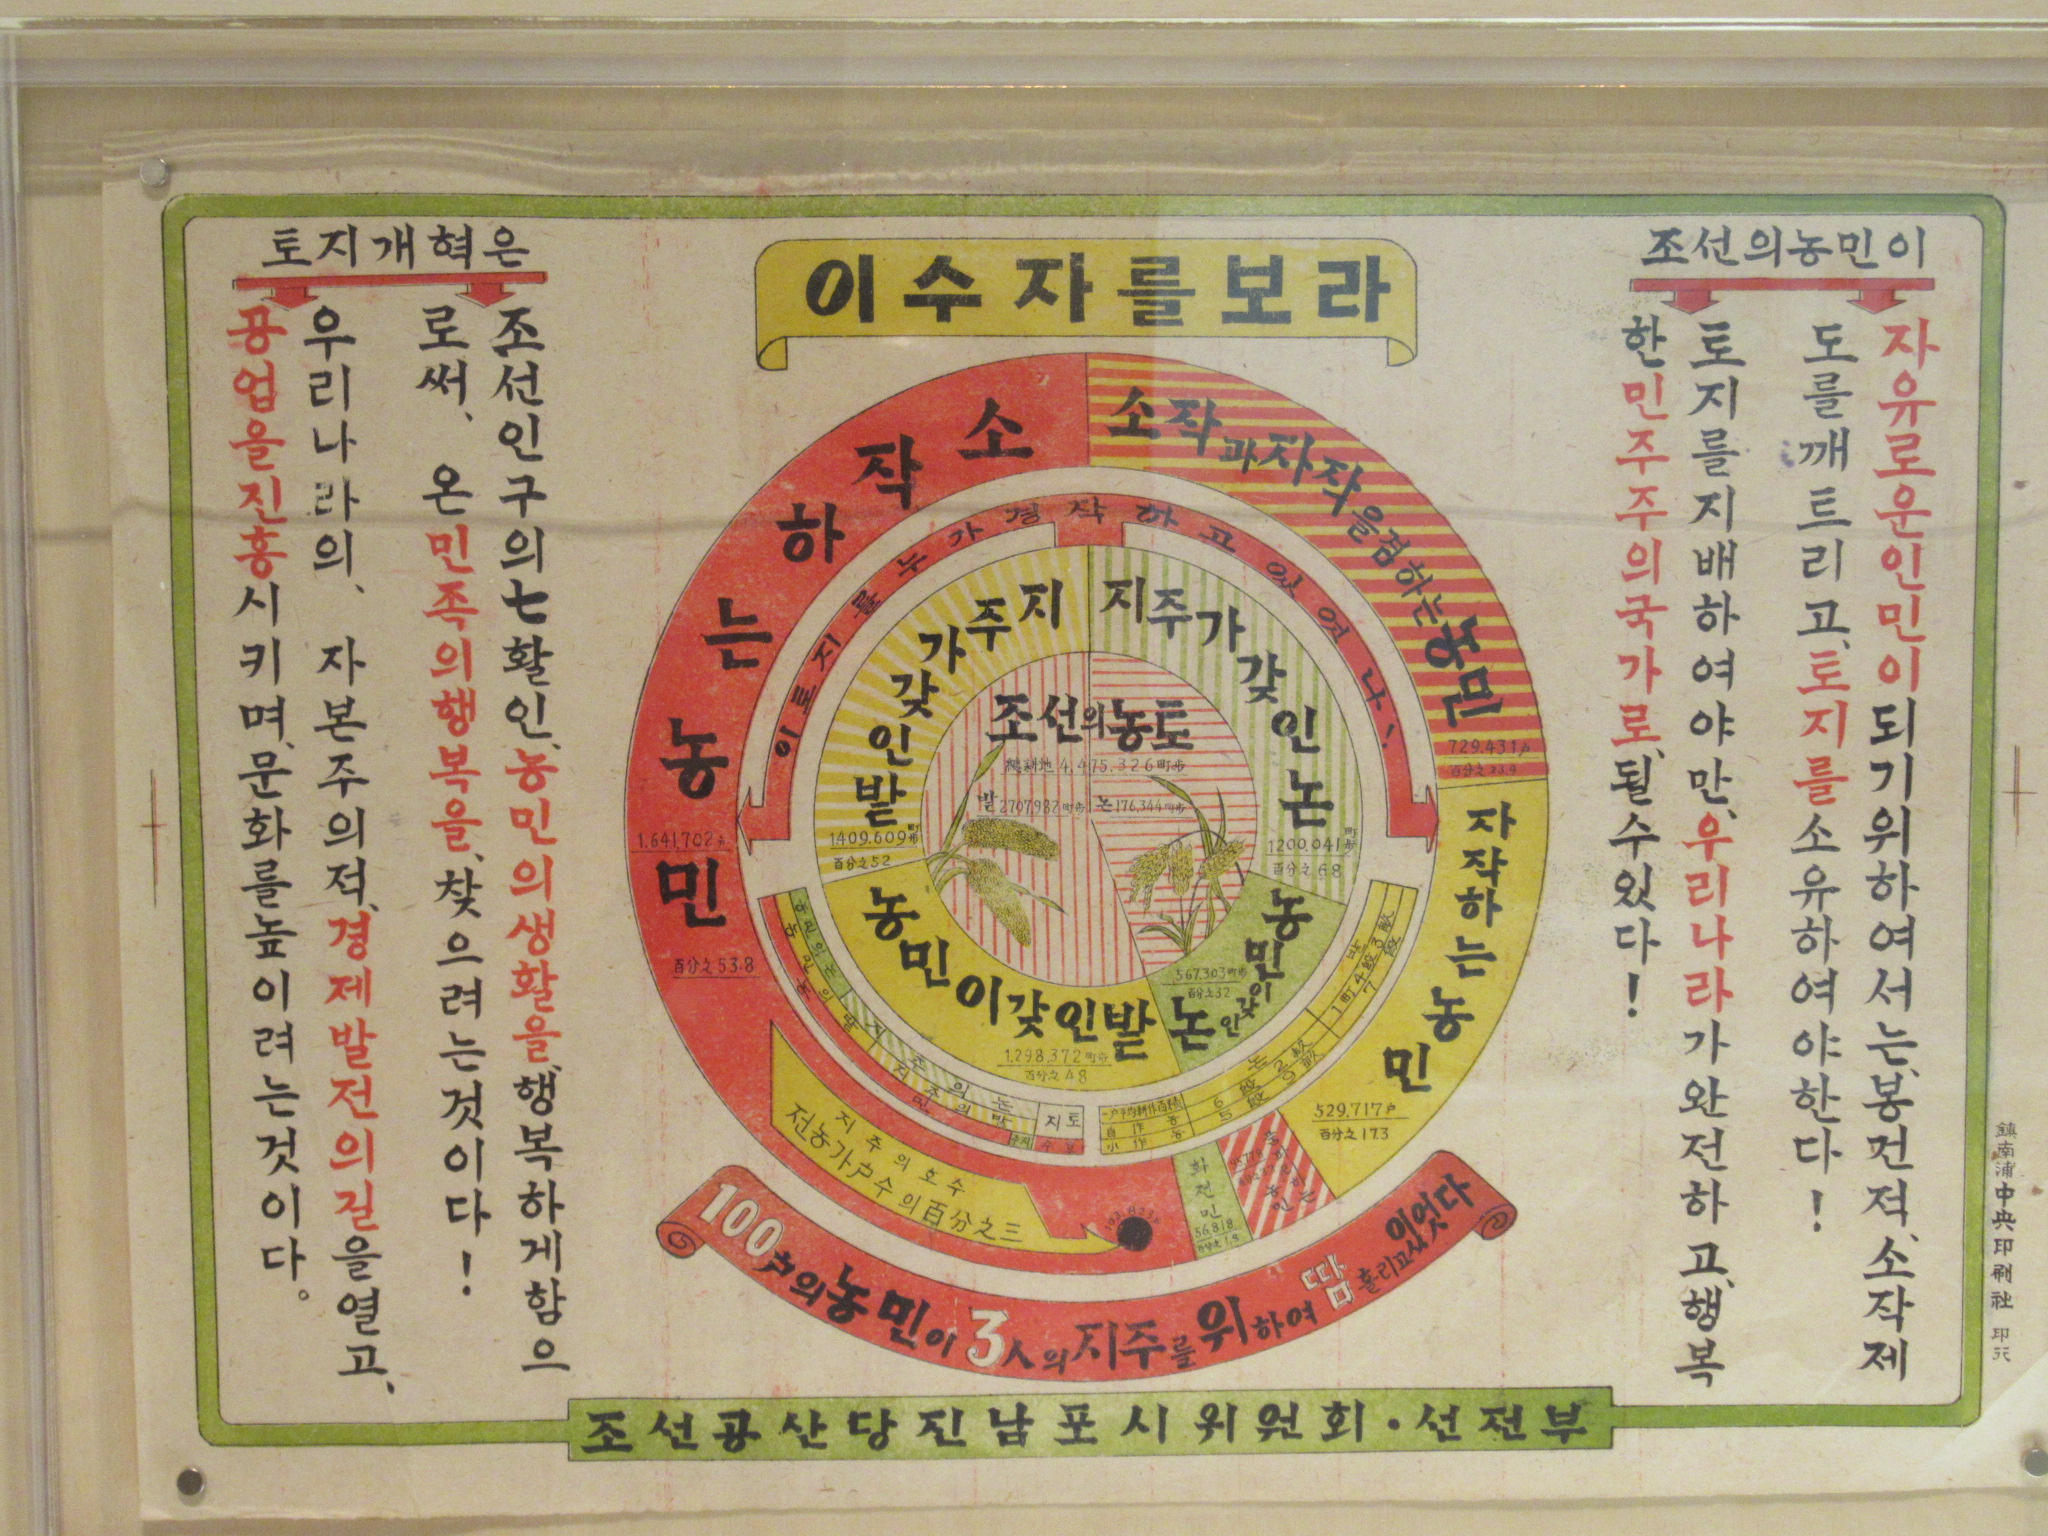 이수자를보라
조선의농민이
자유로운인민이되기위하여서는、봉건적、소작제
도를깨트리고、토지를소유하여야한다!
토지를지배하여야만、우리나라가완전하고、행복
한민주주의국가로、될수있다!
토지개혁은
조선인구의七활인、농민의생활을、행복하게함으
로써、온민족의행복을、찾으려는것이다!
우리나라의、자본주의적、경제발전의길을열고、
공업을진흥시키며、문화를높이려는것이다。
소작하는농민
1.641,702戶
百分之53.8
소작과자작을겸하는농민
729.431戶
百分之23.9
자작하는농민
529,717戶
百分之17.3
화전민
56.818
이토지를누가경작하고있었나!
지주가갖인밭
1409.609町歩
百分之52
지주가갖인논
1200.041町歩
百分之68
농민이갖인밭
1.298,372町歩
百分之48
농민이갖인논
567.303町歩
百分之32
조선의농토
總耕地 4,475,326町步
밭2707,982町步
논176,344町步
토지
一戶平均耕作面積
自作農
小作農
지주의호수
전농가戶수의百分之三
100戶의농민이3人의지주를위하여땀흘리고있었다
조선공산당진남포시위원회·선전부
鎭南浦中央印刷社 印行